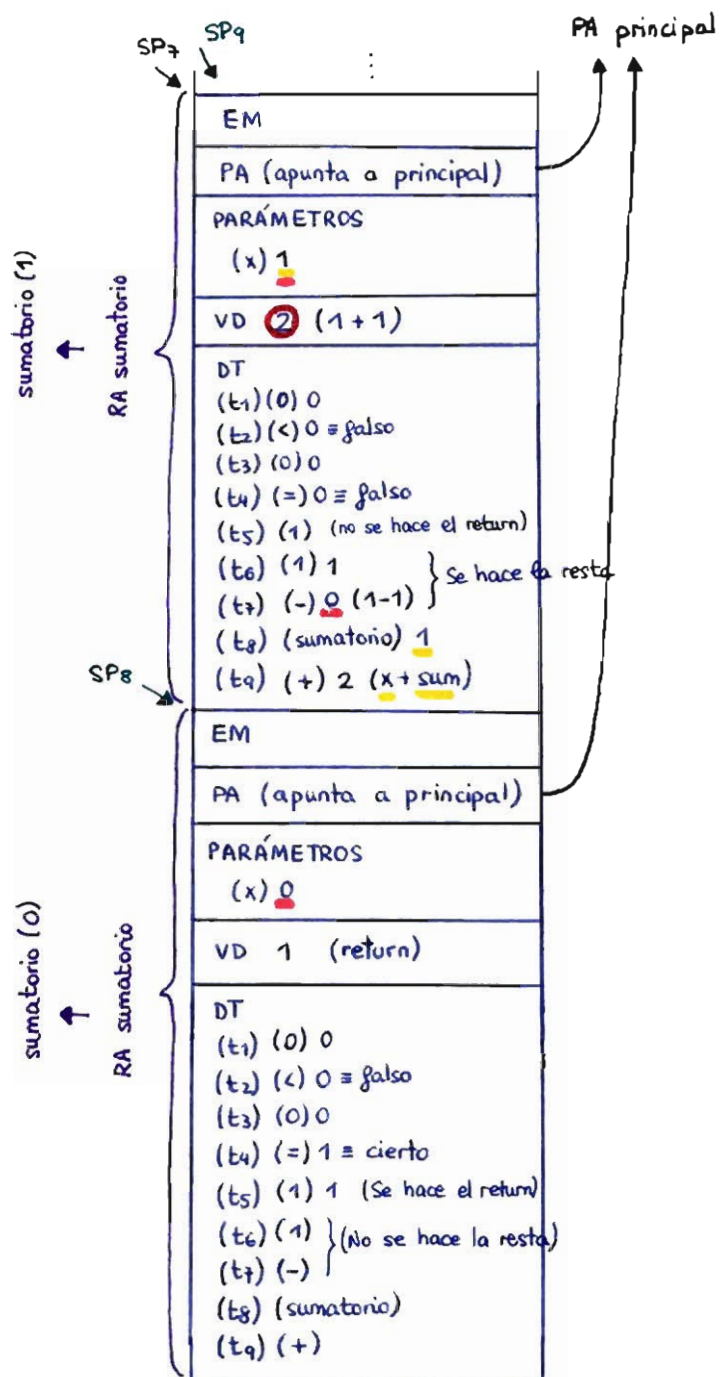 PA principal
SP7
SP9
⋮
EM
PA (apunta a principal)
PARÁMETROS
(x) 1
VD 2 (1+1)
DT
(t1)(0) 0
(t2)(<) 0 ≡ falso
(t3) (0) 0
(t4) (=) 0 ≡ falso
(t5) (1) (no se hace el return)
(t6) (1) 1
(t7) (-) 0 (1-1)
Se hace la resta
(t8) (sumatorio) 1
(t9) (+) 2 (x + sum)
sumatorio (1)
RA sumatorio
SP8
EM
PA (apunta a principal)
PARÁMETROS
(x) 0
VD 1 (return)
DT
(t1) (0) 0
(t2) (<) 0 ≡ falso
(t3) (0) 0
(t4) (=) 1 ≡ cierto
(t5) (1) 1 (Se hace el return)
(t6) (1)
(t7) (-)
(No se hace la resta)
(t8) (sumatorio)
(t9) (+)
sumatorio (0)
RA sumatorio